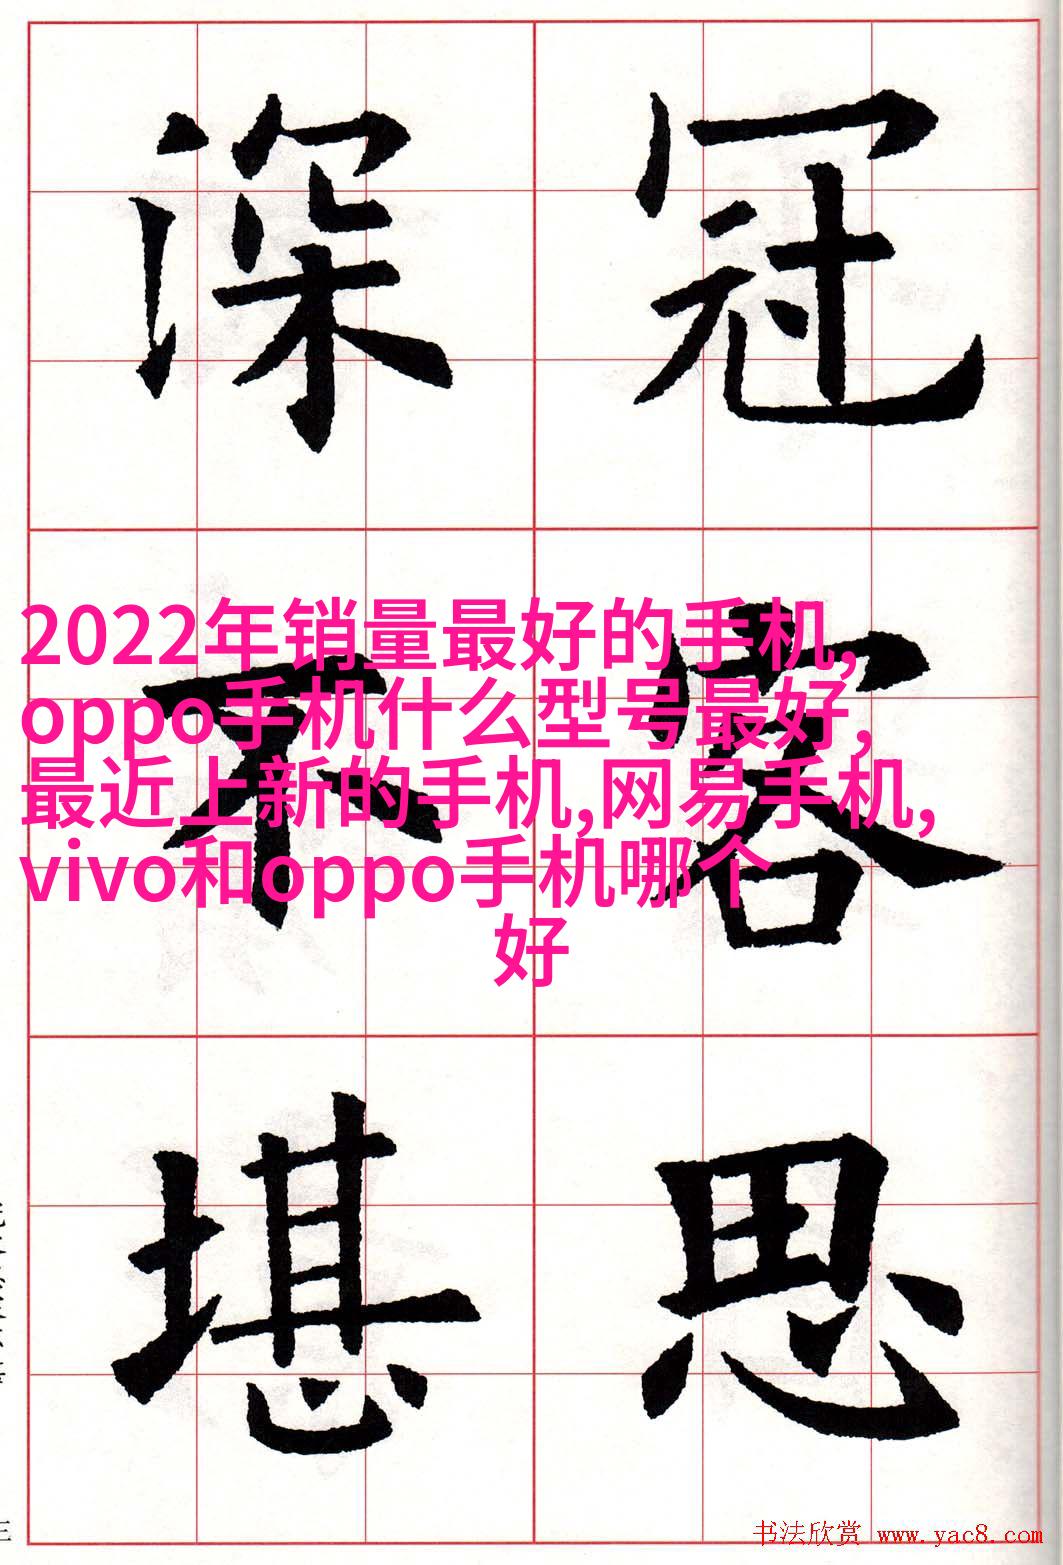 深冠
2022年销量最好的手机,
oppo手机什么型号最好,
最近上新的手机,网易手机,
vivo和oppo手机哪个
好
不容
堪思
书法欣赏 www.yac8.com